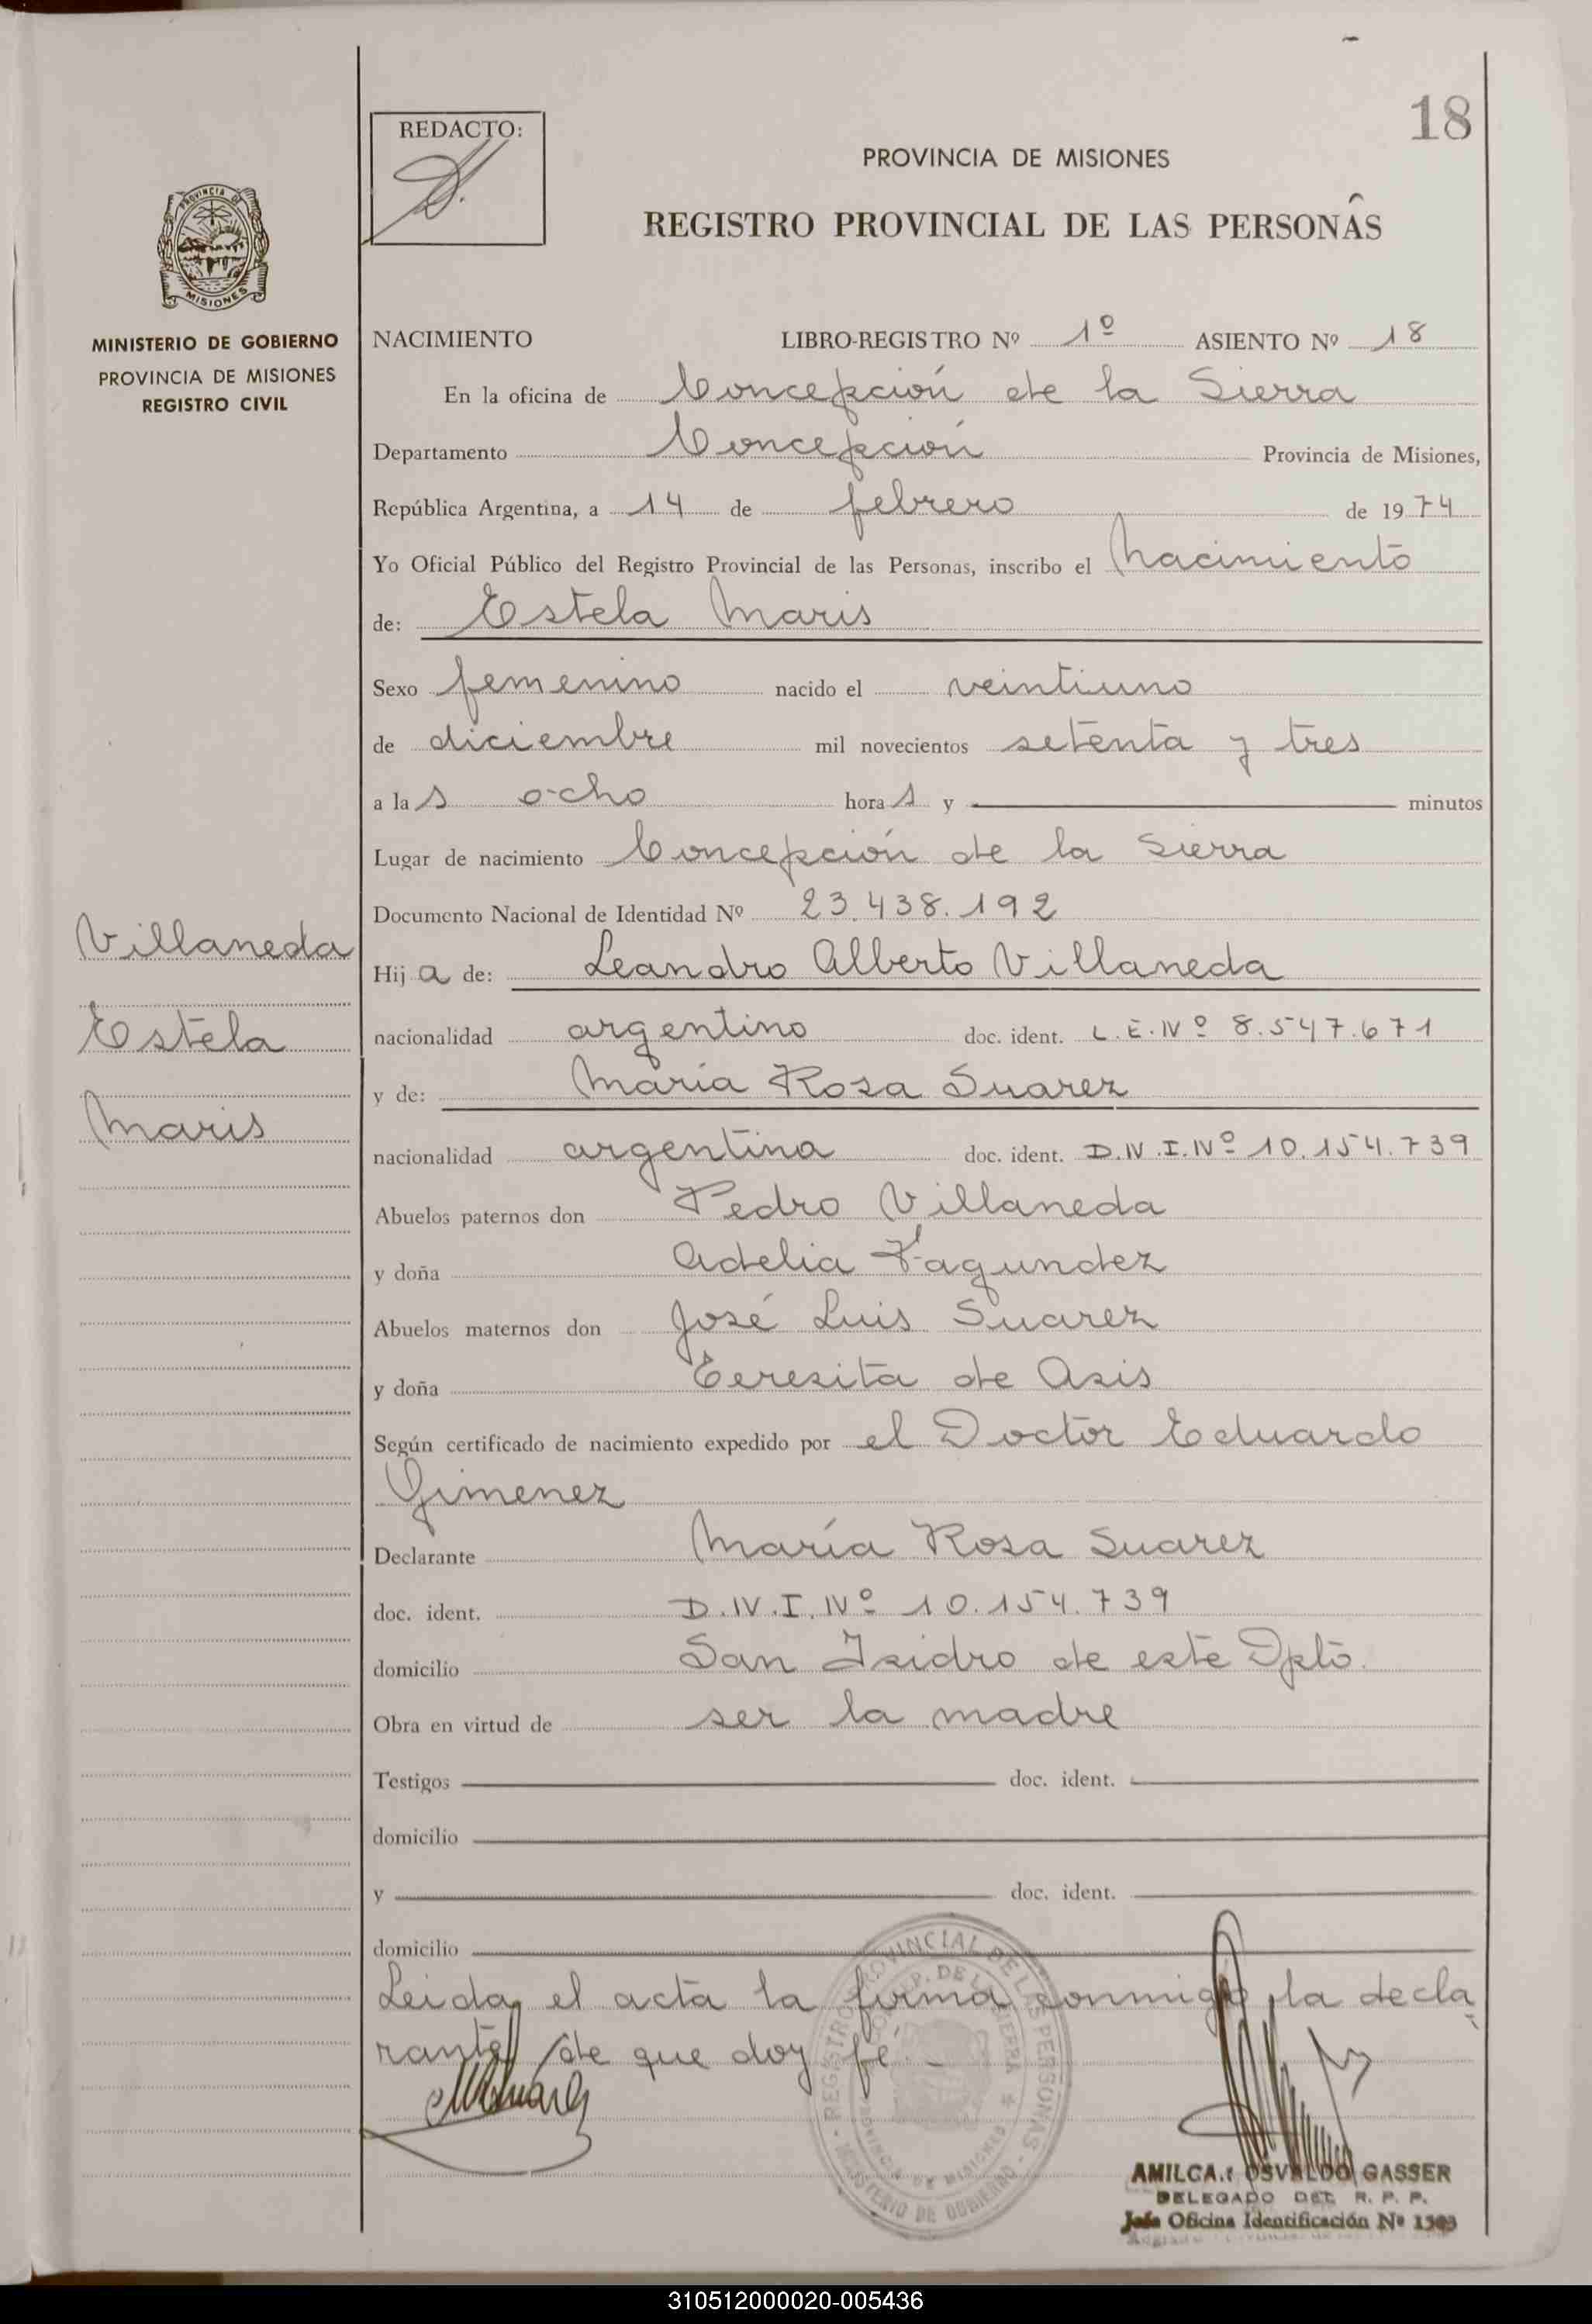 18
REDACTO:
PROVINCIA DE MISIONES
REGISTRO PROVINCIAL DE LAS PERSONAS
PROVINCIA DE
MISIONES
MINISTERIO DE GOBIERNO
PROVINCIA DE MISIONES
REGISTRO CIVIL
NACIMIENTO LIBRO-REGISTRO Nº 1º ASIENTO Nº 18
En la oficina de Concepción de la Sierra
Departamento Concepción Provincia de Misiones,
República Argentina, a 14 de febrero de 1974
Yo Oficial Público del Registro Provincial de las Personas, inscribo el Nacimiento
de: Estela Maris
Sexo femenino nacido el veintiuno
de diciembre mil novecientos setenta y tres
a las ocho horas y minutos
Lugar de nacimiento Concepción de la Sierra
Documento Nacional de Identidad Nº 23.438.192
Villaneda
Estela
Maris
Hija de: Leandro Alberto Villaneda
nacionalidad argentino doc. ident. L.E.Nº 8.547.671
y de: María Rosa Suarez
nacionalidad argentina doc. ident. D.N.I.Nº 10.154.739
Abuelos paternos don Pedro Villaneda
y doña Adelia Fagundez
Abuelos maternos don José Luis Suarez
y doña Teresita de Asis
Según certificado de nacimiento expedido por el Doctor Eduardo
Gimenez
Declarante María Rosa Suarez
doc. ident. D.N.I.Nº 10.154.739
domicilio San Isidro de este Dpto.
Obra en virtud de ser la madre
Testigos doc. ident.
domicilio
y doc. ident.
domicilio
Leida el acta la firma conmigo la decla
rante de que doy fé.-
REGISTRO PROVINCIAL DE LAS PERSONAS
MINISTERIO DE GOBIERNO
PROVINCIA DE MISIONES
AMILCAR OSVALDO GASSER
DELEGADO DEL R. P. P.
Jefe Oficina Identificación Nº 1303
310512000020-005436